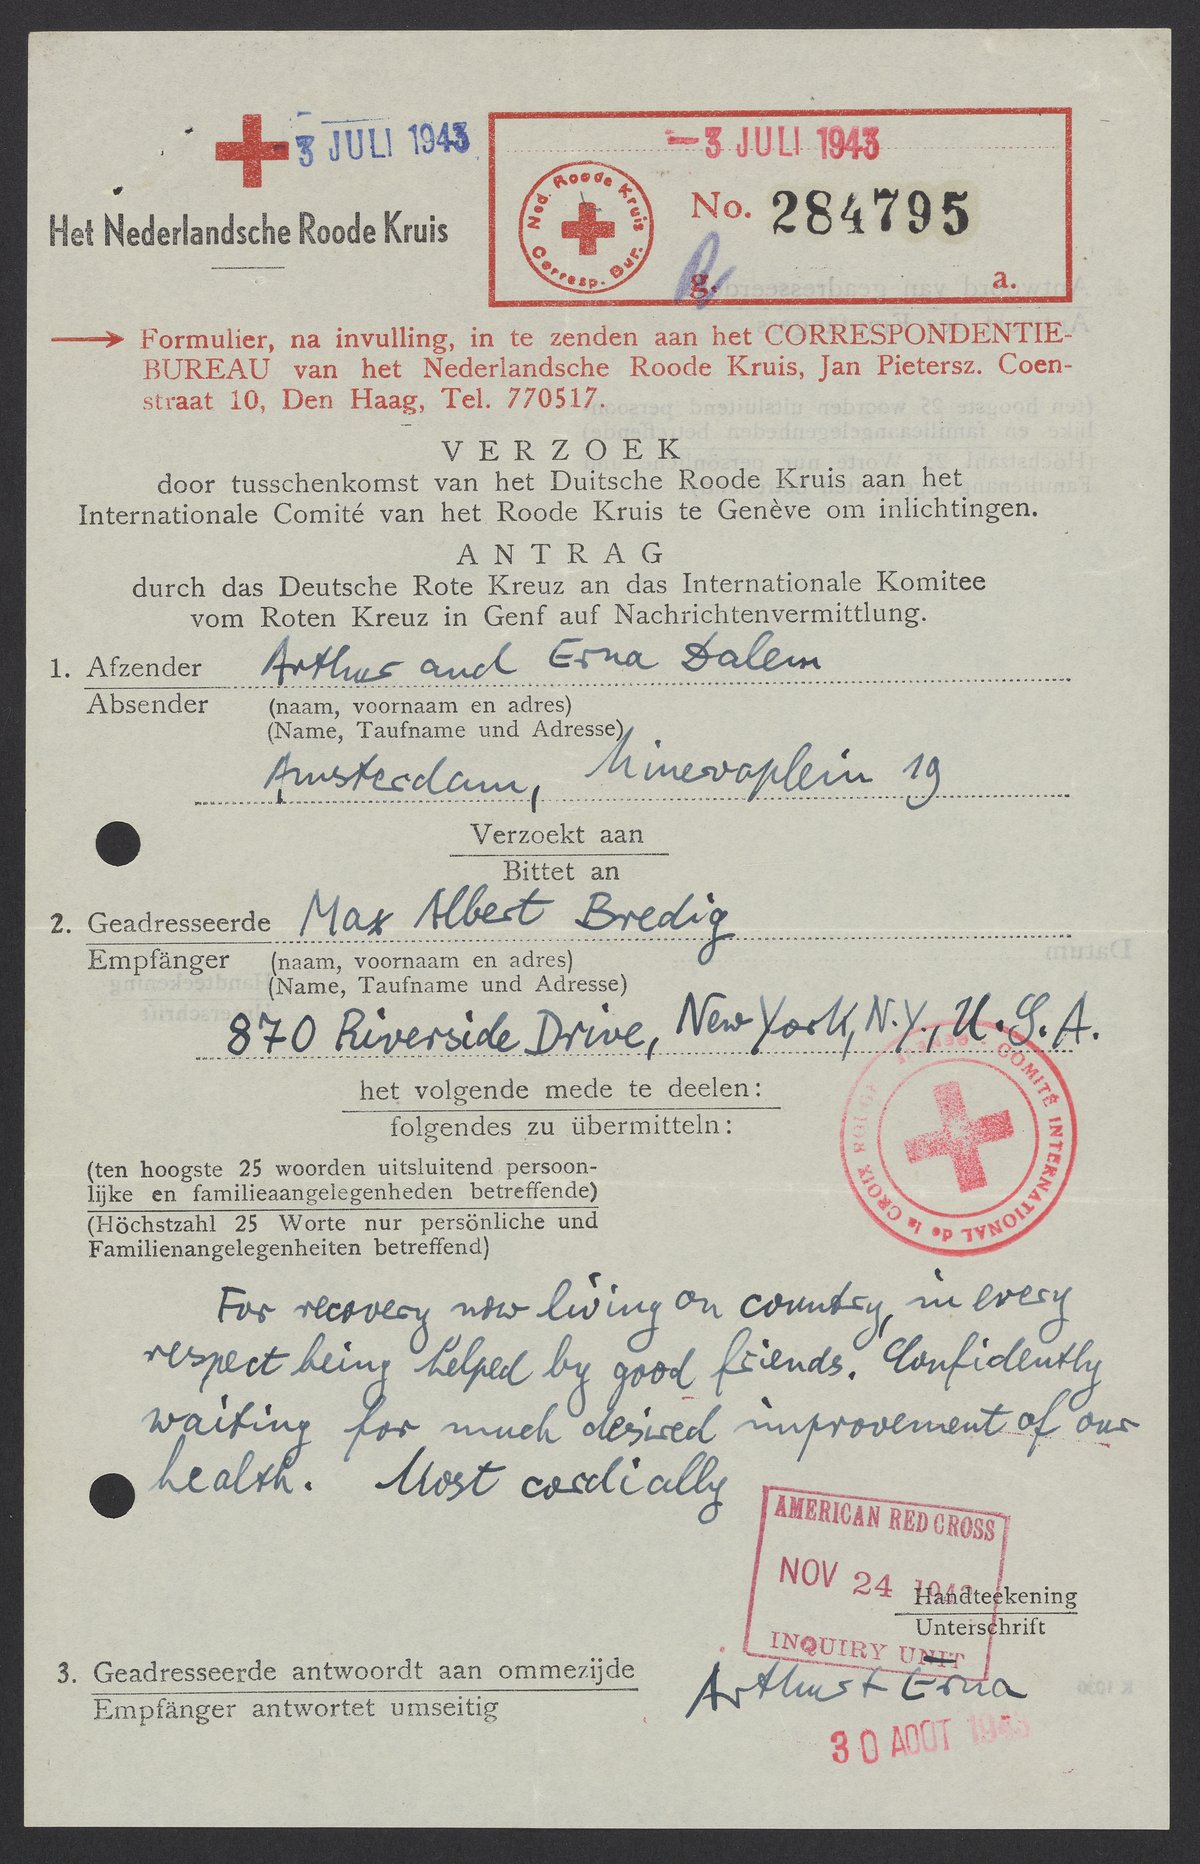 3 JULI 1943
-3 JULI 1943
Ned. Roode Kruis
Corresp. Bur.
No. 284795
g. a.
Het Nederlandsche Roode Kruis
Formulier, na invulling, in te zenden aan het CORRESPONDENTIE-
BUREAU van het Nederlandsche Roode Kruis, Jan Pietersz. Coen-
straat 10, Den Haag, Tel. 770517.
VERZOEK
door tusschenkomst van het Duitsche Roode Kruis aan het
Internationale Comité van het Roode Kruis te Genève om inlichtingen.
ANTRAG
durch das Deutsche Rote Kreuz an das Internationale Komitee
vom Roten Kreuz in Genf auf Nachrichtenvermittlung.
1. Afzender Arthur and Erna Dalem
Absender (naam, voornaam en adres)
(Name, Taufname und Adresse)
Amsterdam, Minervaplein 19
Verzoekt aan
Bittet an
2. Geadresseerde Max Albert Bredig
Empfänger (naam, voornaam en adres)
(Name, Taufname und Adresse)
870 Riverside Drive, New York, N.Y., U.S.A.
het volgende mede te deelen:
folgendes zu übermitteln:
COMITÉ INTERNATIONAL de la CROIX ROUGE
(ten hoogste 25 woorden uitsluitend persoon-
lijke en familieaangelegenheden betreffende)
(Höchstzahl 25 Worte nur persönliche und
Familienangelegenheiten betreffend)
For recovery now living on country, in every
respect being helped by good friends. Confidently
waiting for much desired improvement of our
health. Most cordially
AMERICAN RED CROSS
NOV 24 1943
INQUIRY UNIT
Handteekening
Unterschrift
3. Geadresseerde antwoordt aan ommezijde
Empfänger antwortet umseitig
Arthur + Erna
30 AOUT 1943